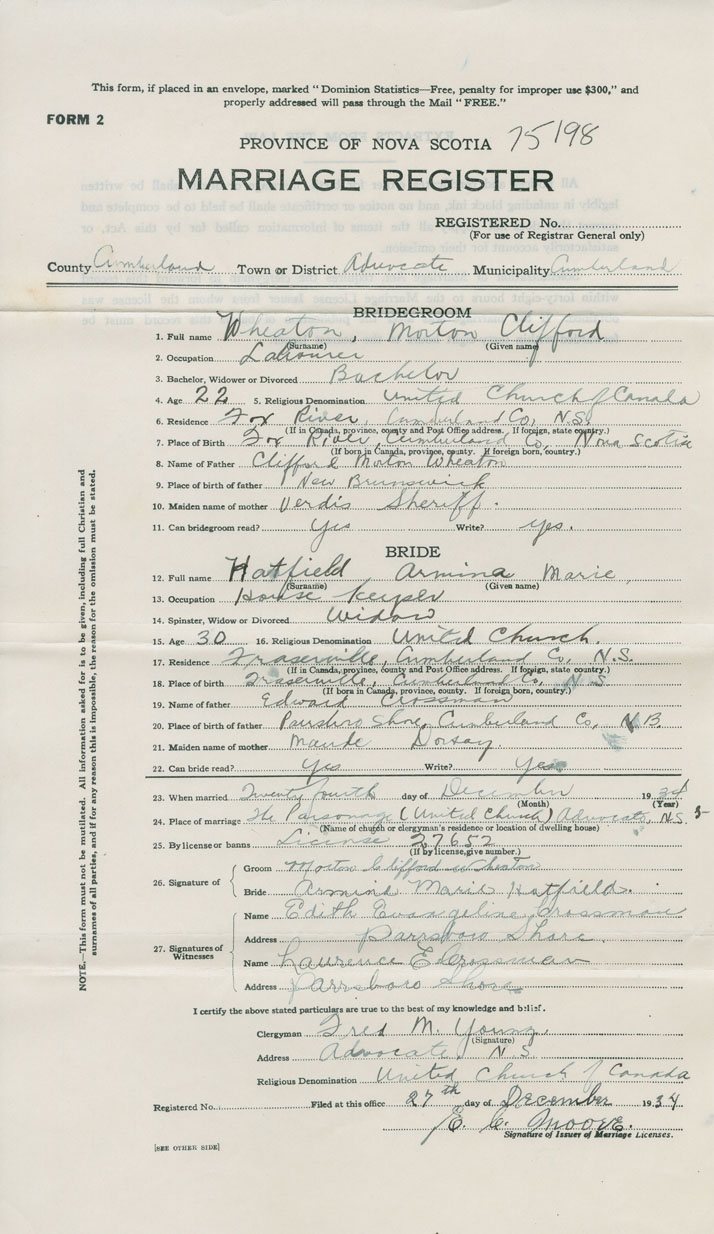 This form, if placed in an envelope, marked "Dominion Statistics—Free, penalty for improper use $300," and
properly addressed will pass through the Mail "FREE."
FORM 2
75198
PROVINCE OF NOVA SCOTIA
MARRIAGE REGISTER
REGISTERED No.
(For use of Registrar General only)
County Cumberland Town or District Advocate Municipality Cumberland
BRIDEGROOM
1. Full name Wheaton, Morton Clifford
(Surname) (Given name)
2. Occupation Labourer
3. Bachelor, Widower or Divorced Bachelor
4. Age 22 5. Religious Denomination United Church of Canada
6. Residence Fox River, Cumberland Co, N.S.
(If in Canada, province, county and Post Office address. If foreign, state country.)
7. Place of Birth Fox River, Cumberland Co, Nova Scotia
(If born in Canada, province, county. If foreign born, country.)
8. Name of Father Clifford Morton Wheaton
9. Place of birth of father New Brunswick
10. Maiden name of mother Verdis Sheriff.
11. Can bridegroom read? Yes Write? yes.
BRIDE
12. Full name Hatfield Armina Marie,
(Surname) (Given name)
13. Occupation House Keeper
14. Spinster, Widow or Divorced Widow
15. Age 30 16. Religious Denomination United Church.
17. Residence Fraserville, Cumberland Co, N.S.
(If in Canada, province, county and Post Office address. If foreign, state country.)
18. Place of birth Fraserville, Cumberland Co. N.S.
(If born in Canada, province, county. If foreign born, country.)
19. Name of father Edward Crossman
20. Place of birth of father Parrsboro Shore, Cumberland Co, N.B.
21. Maiden name of mother Maude Dorsay.
22. Can bride read? Yes Write? Yes
23. When married Twenty fourth day of December 1934
(Month) (Year)
24. Place of marriage The Parsonage (United Church) Advocate, N.S.
(Name of church or clergyman's residence or location of dwelling house)
25. By license or banns License 27652
(If by license, give number.)
26. Signature of
Groom Morton Clifford Wheaton
Bride Armina Marie Hatfield.
27. Signatures of Witnesses
Name Edith Evangeline Crossman
Address Parrsboro Shore.
Name Laurence E Crossman
Address Parrsboro Shore
I certify the above stated particulars are true to the best of my knowledge and belief.
Clergyman Fred M. Young.
(Signature)
Address Advocate, N.S.
Religious Denomination United Church of Canada
Registered No. Filed at this office 27th day of December 1934
E. C. Moore.
Signature of Issuer of Marriage Licenses.
[SEE OTHER SIDE]
NOTE.—This form must not be mutilated. All information asked for is to be given, including full Christian and
surnames of all parties, and if for any reason this is impossible, the reason for the omission must be stated.